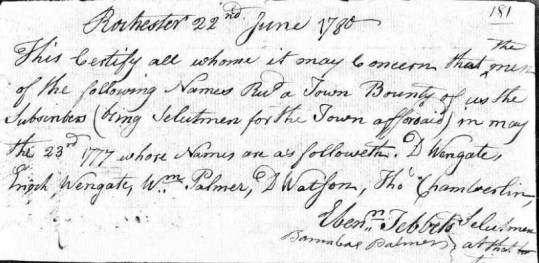 181
Rochester 22nd June 1780
This Certify all whome it may Concern that the men
of the following Names Recd a Town Bounty of us the
Subscribers (being Selutmen for the Town afforsaid) in may
the 23rd 1777 whose Names are as followeth. D Wengate,
Enoch Wengate, Wm Palmer, D Watson, Tho Chamberlin,
Ebenr Tebbets Selutmen
Barnabas Palmer at that